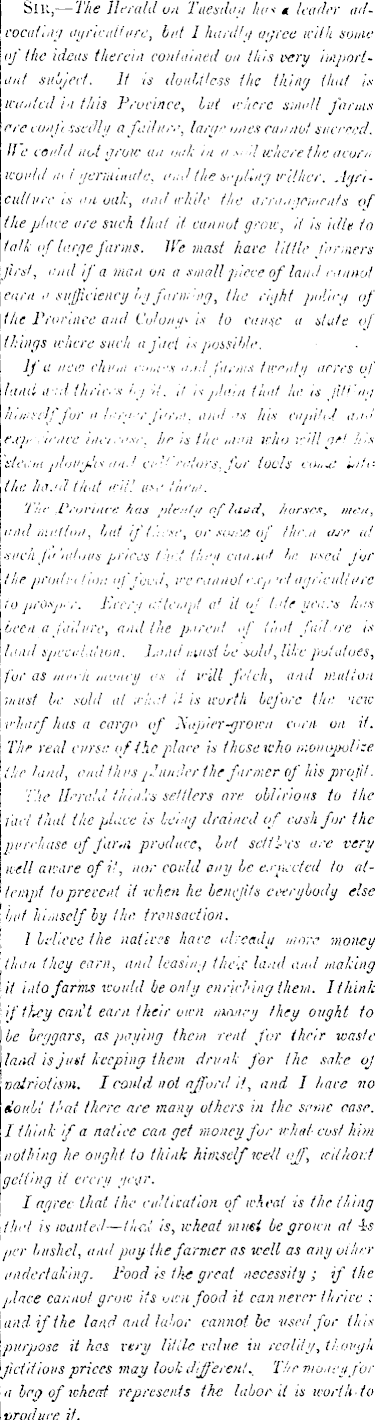 SIR,—The Herald on Tuesday has a leader ad-
vocating agriculture, but I hardly agree with some
of the ideas therein contained on this very import-
ant subject. It is doubtless the thing that is
wanted in this Province, but where small farms
are confessedly a failure, large ones cannot succeed.
We could not grow an oak in a soil where the acorn
would not germinate, and the sapling wither. Agri-
culture is an oak, and while the arrangements of
the place are such that it cannot grow, it is idle to
talk of large farms. We mast have little farmers
first, and if a man on a small piece of land cannot
earn a sufficiency by farming, the right policy of
the Province and Colony is to cause a state of
things where such a fact is possible.
If a new chum comes and farms twenty acres of
land and thrives by it, it is plain that he is fitting
himself for a larger farm, and as his capital and
experience increase, he is the man who will get his
steam ploughs and cultivators, for tools come into
the hand that will use them.
The Province has plenty of land, horses, men,
and mutton, but if these, or some of them are at
such fabulous prices that they cannot be used for
the production of food, we cannot expect agriculture
to prosper. Every attempt at it of late years has
been a failure, and the parent of that failure is
land speculation. Land must be sold, like potatoes,
for as much money as it will fetch, and mutton
must be sold at what it is worth before the new
wharf has a cargo of Napier-grown corn on it.
The real curse of the place is those who monopolize
the land, and thus plunder the farmer of his profit.
The Herald thinks settlers are oblivious to the
fact that the place is being drained of cash for the
purchase of farm produce, but settlers are very
well aware of it, nor could any be expected to at-
tempt to prevent it when he benefits everybody else
but himself by the transaction.
I believe the natives have already more money
than they earn, and leasing their land and making
it into farms would be only enriching them. I think
if they can't earn their own money they ought to
be beggars, as paying them rent for their waste
land is just keeping them drunk for the sake of
patriotism. I could not afford it, and I have no
doubt that there are many others in the same case.
I think if a native can get money for what cost him
nothing he ought to think himself well off, without
getting it every year.
I agree that the cultivation of wheat is the thing
that is wanted—that is, wheat must be grown at 4s
per bushel, and pay the farmer as well as any other
undertaking. Food is the great necessity; if the
place cannot grow its own food it can never thrive:
and if the land and labor cannot be used for this
purpose it has very little value in reality, though
fictitious prices may look different. The money for
a bag of wheat represents the labor it is worth to
produce it.